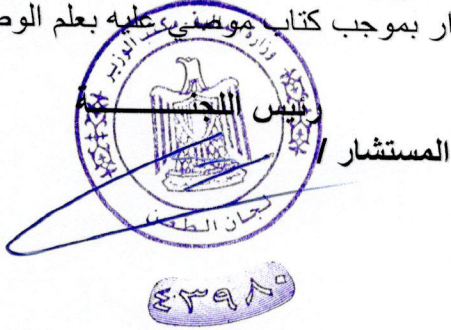 ار بموجب كتاب موصى عليه بعلم الوص
رئيس اللجنـــــــــة
المستشار /
لجان الطعن
٤٣٩٨٠